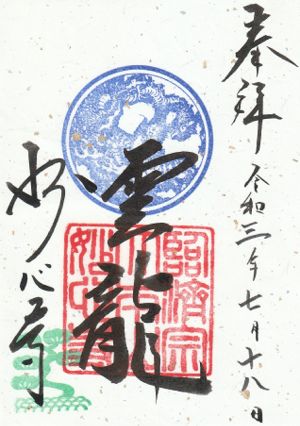 奉拝
令和三年七月十八日
雲龍
臨済宗
大本山
妙心寺
妙心寺